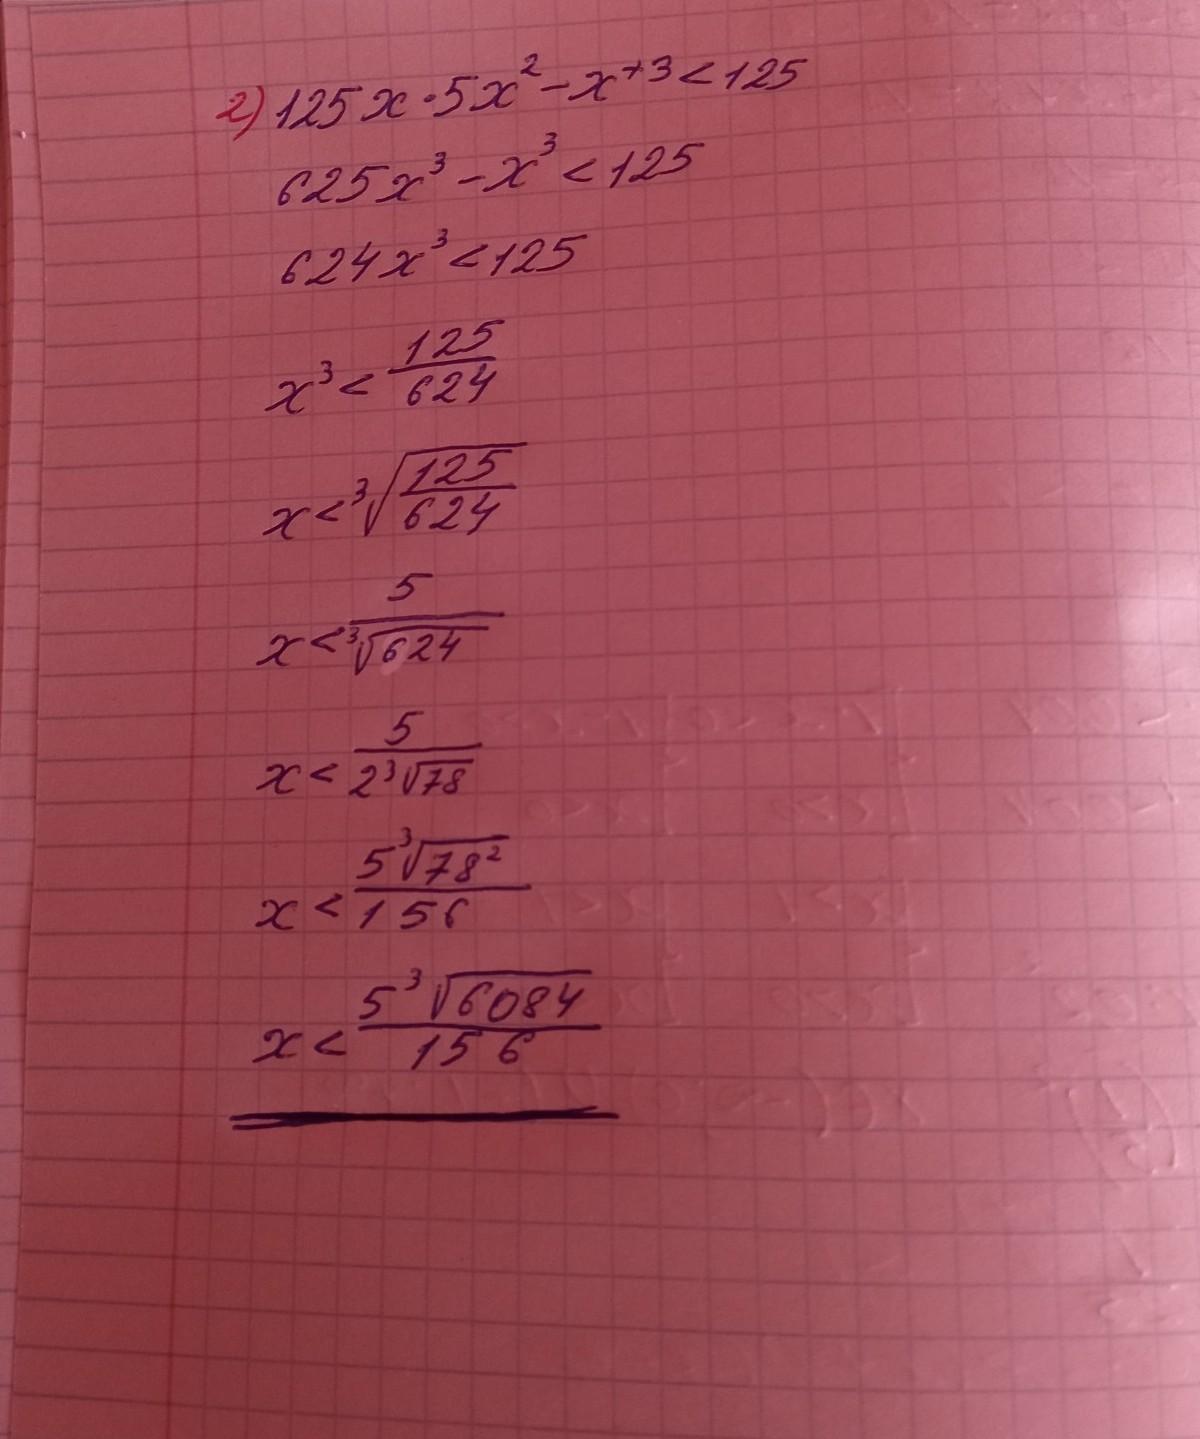 2) 125x·5x²-x⁺³<125
625x³-x³<125
624x³<125
x³<125/624
x<³√(125/624)
x<5/³√624
x<5/2³√78
x<5³√78²/156
x<5³√6084/156